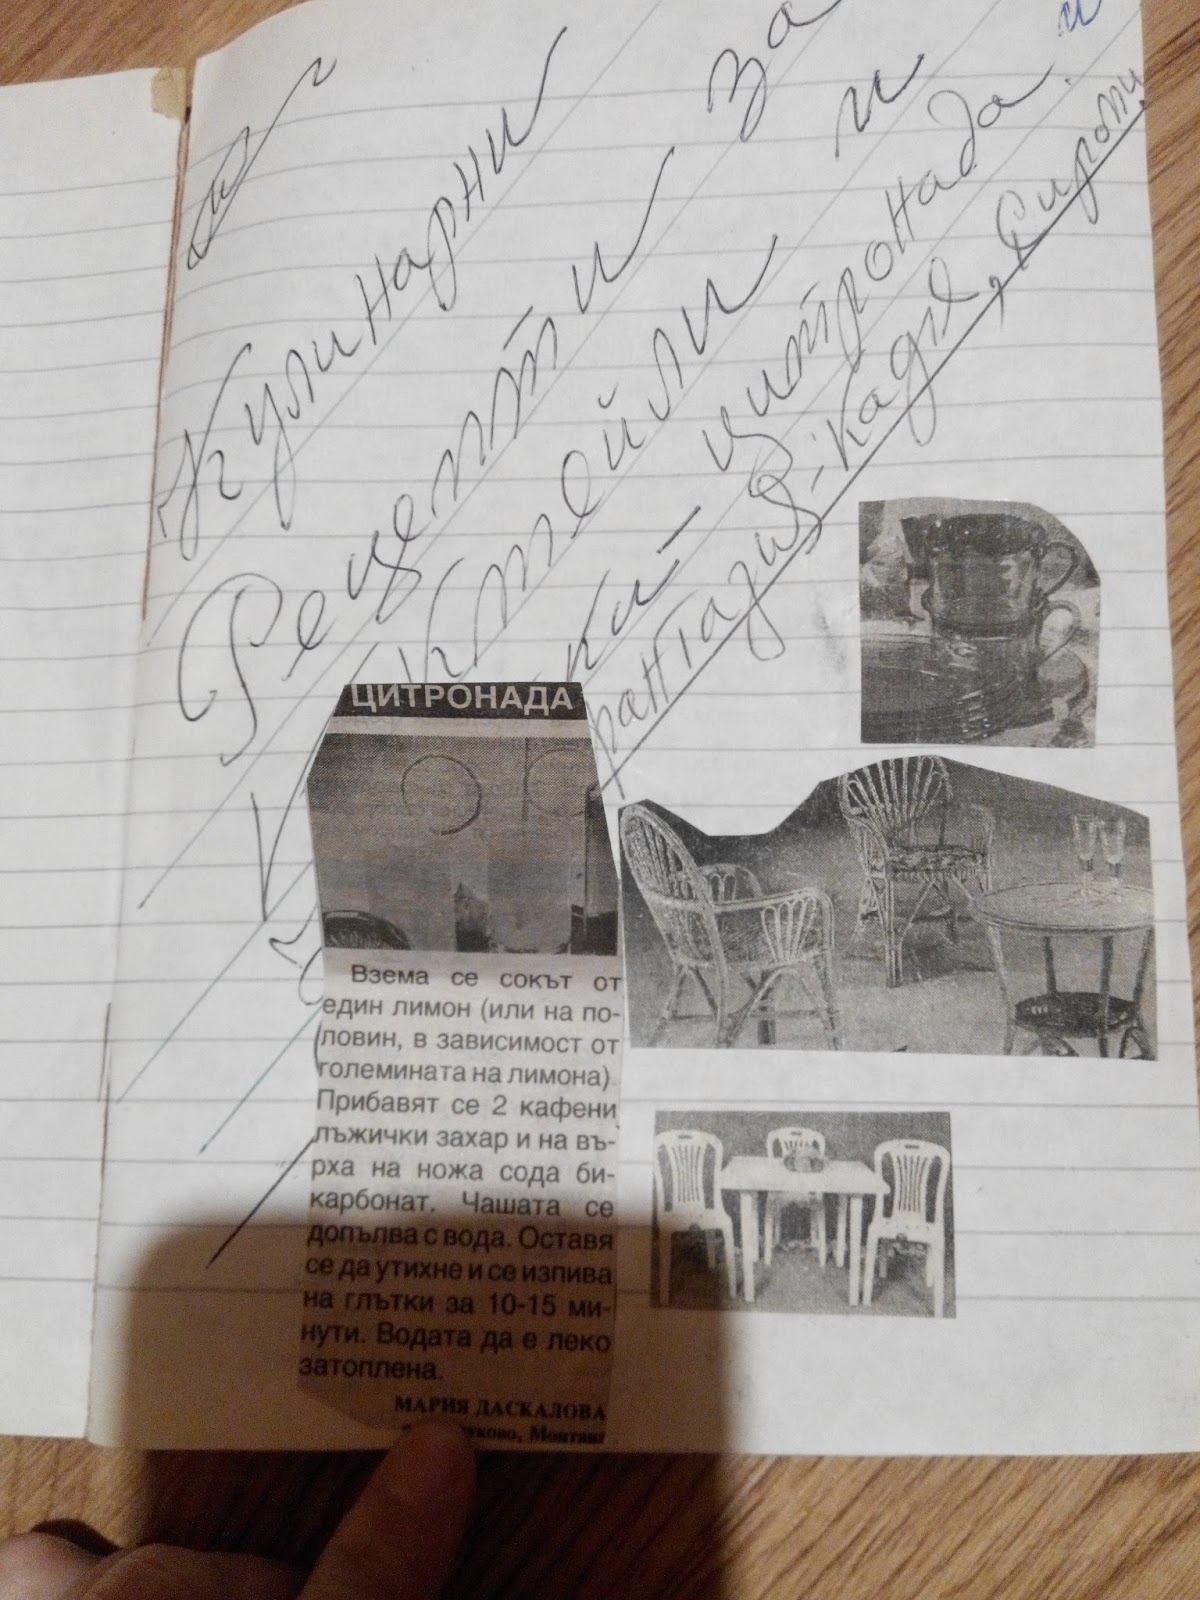 Кулинарни
Рецепти за
Ктейли и
кай- цитронада. и
рантазия-Кадя, Сиропи,
ЦИТРОНАДА
Взема се сокът от
един лимон (или на по-
ловин, в зависимост от
големината на лимона)
Прибавят се 2 кафени
лъжички захар и на въ-
рха на ножа сода би-
карбонат. Чашата се
допълва с вода. Оставя
се да утихне и се изпива
на глътки за 10-15 ми-
нути. Водата да е леко
затоплена.
МАРИЯ ДАСКАЛОВА